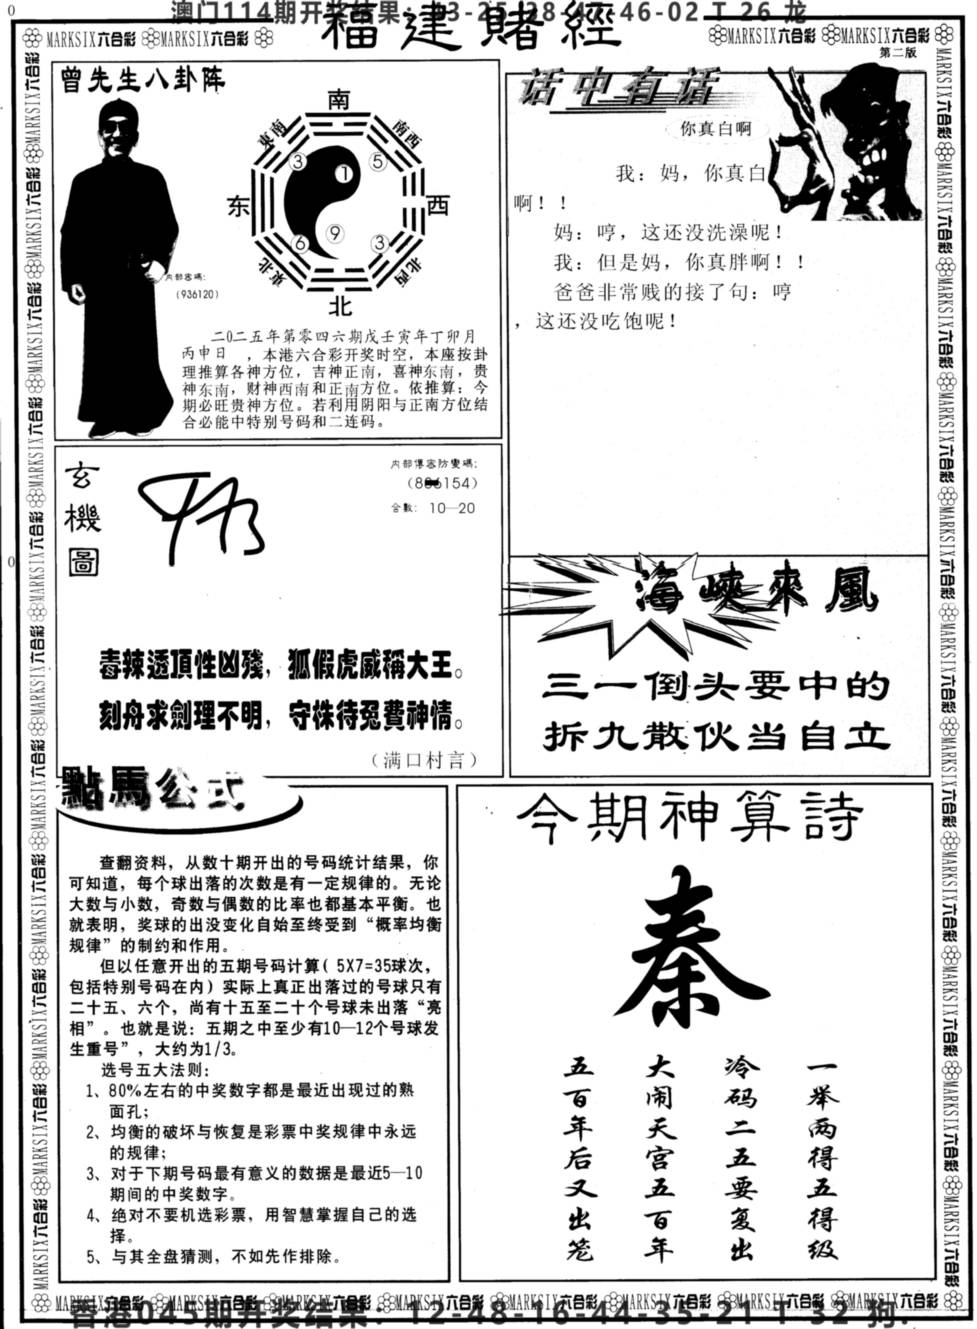 澳门114期开奖结果：
46-02 T 26 龙
福建賭經
MARKSIX六合彩 MARKSIX六合彩
MARKSIX六合彩 MARKSIX六合彩
第二版
曾先生八卦阵
南
東南
南西
③ ① ⑤
东
西
⑥ ⑨ ③
東北
北西
北
内部密碼：
（936120）
二〇二五年第零四六期戊壬寅年丁卯月
丙申日 ，本港六合彩开奖时空，本座按卦
理推算各神方位，吉神正南，喜神东南，贵
神东南，财神西南和正南方位。依推算：今
期必旺贵神方位。若利用阴阳与正南方位结
合必能中特别号码和二连码。
话中有话
你真白啊
我：妈，你真白
啊！！
妈：哼，这还没洗澡呢！
我：但是妈，你真胖啊！！
爸爸非常贱的接了句：哼
，这还没吃饱呢！
玄機圖
内部傳密防變碼：
合數： 10—20
毒辣透頂性凶殘，狐假虎威稱大王。
刻舟求劍理不明，守株待兔費神情。
（满口村言）
海峽來風
三一倒头要中的
拆九散伙当自立
點馬公式
查翻资料，从数十期开出的号码统计结果，你
可知道，每个球出落的次数是有一定规律的。无论
大数与小数，奇数与偶数的比率也都基本平衡。也
就表明，奖球的出没变化自始至终受到“概率均衡
规律”的制约和作用。
但以任意开出的五期号码计算（5X7=35球次，
包括特别号码在内）实际上真正出落过的号球只有
二十五、六个，尚有十五至二十个号球未出落“亮
相”。也就是说：五期之中至少有10—12个号球发
生重号”，大约为1/3。
选号五大法则：
1、80%左右的中奖数字都是最近出现过的熟
面孔；
2、均衡的破坏与恢复是彩票中奖规律中永远
的规律；
3、对于下期号码最有意义的数据是最近5—10
期间的中奖数字。
4、绝对不要机选彩票，用智慧掌握自己的选
择。
5、与其全盘猜测，不如先作排除。
今期神算詩
秦
一举两得五得级
冷码二五要复出
大闹天宫五百年
五百年后又出笼
香港045期开奖结果：12-48-16-44-35-21 T 32 狗.